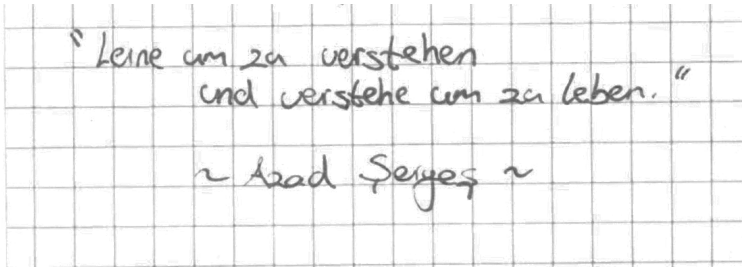 "Leine um zu verstehen
und verstehe um zu leben."
~ Azad Şeryeş ~